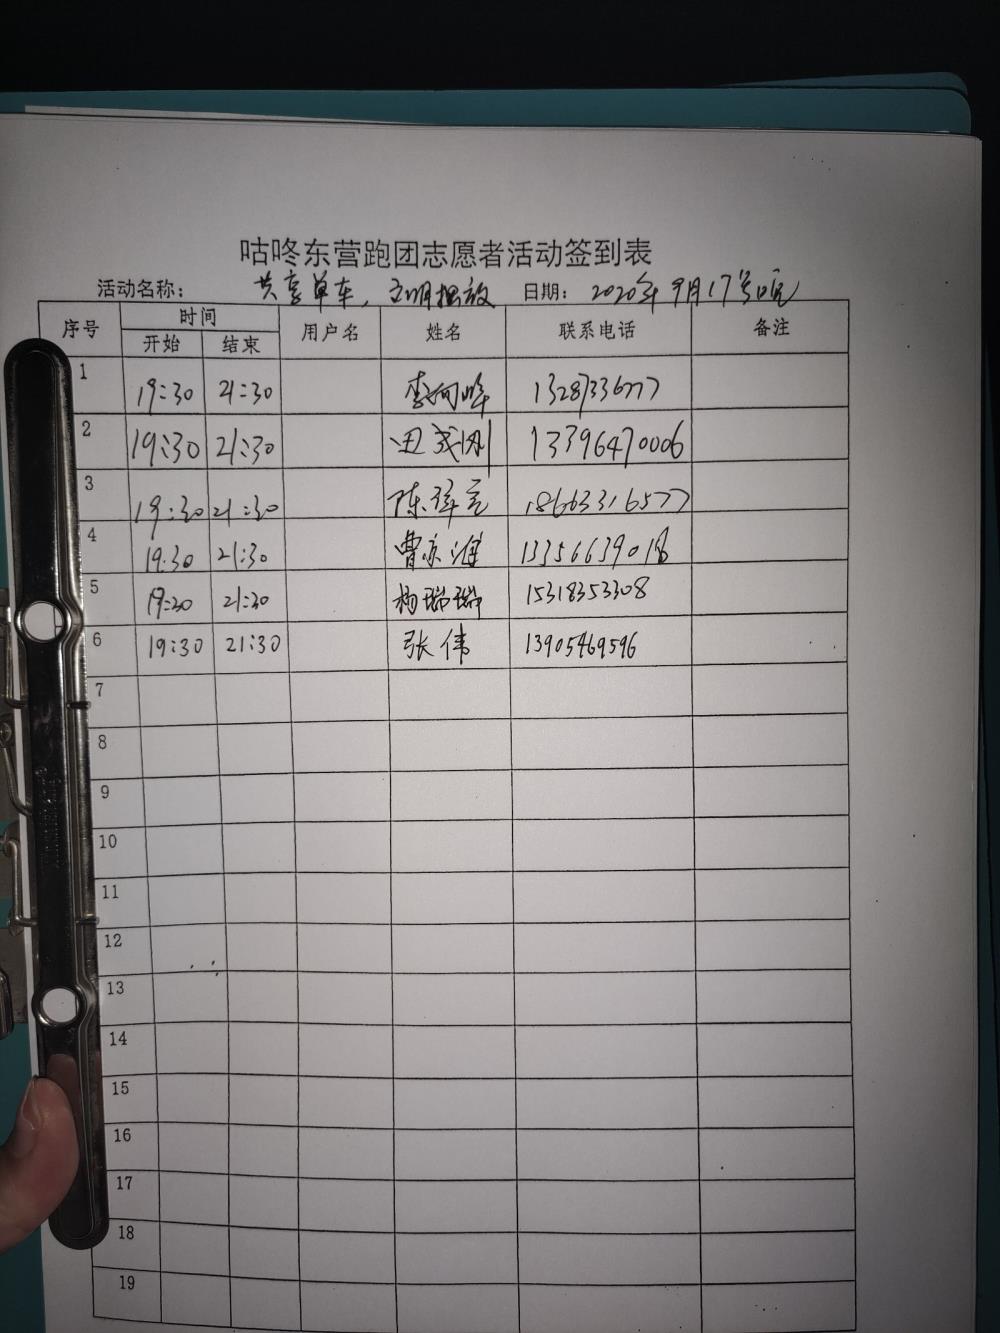 咕咚东营跑团志愿者活动签到表
活动名称: 共享单车,文明摆放 日期: 2020年9月17号晚
序号 时间 用户名 姓名 联系电话 备注
开始 结束
1 19:30 21:30 李向峰 13287336777
2 19:30 21:30 田茂刚 13396470006
3 19:30 21:30 陈 18663316577
4 19:30 21:30 曹 13356639018
5 19:30 21:30 杨瑞瑞 15318353308
6 19:30 21:30 张伟 13905469596
7
8
9
10
11
12
13
14
15
16
17
18
19